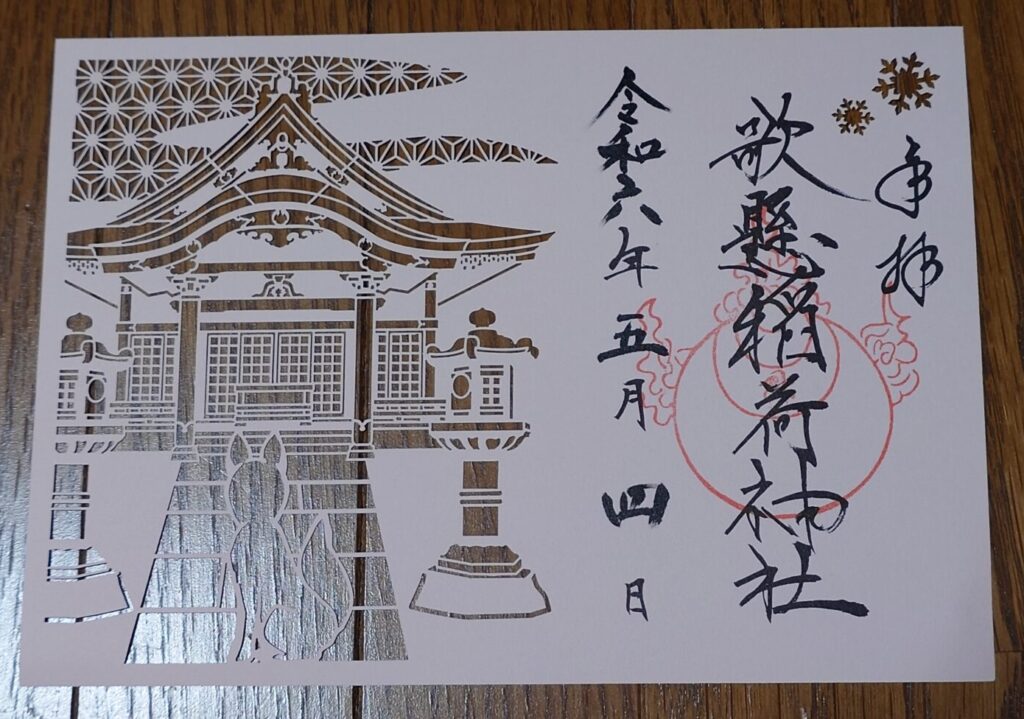 奉拝
歌懸稲荷神社
令和六年五月四日